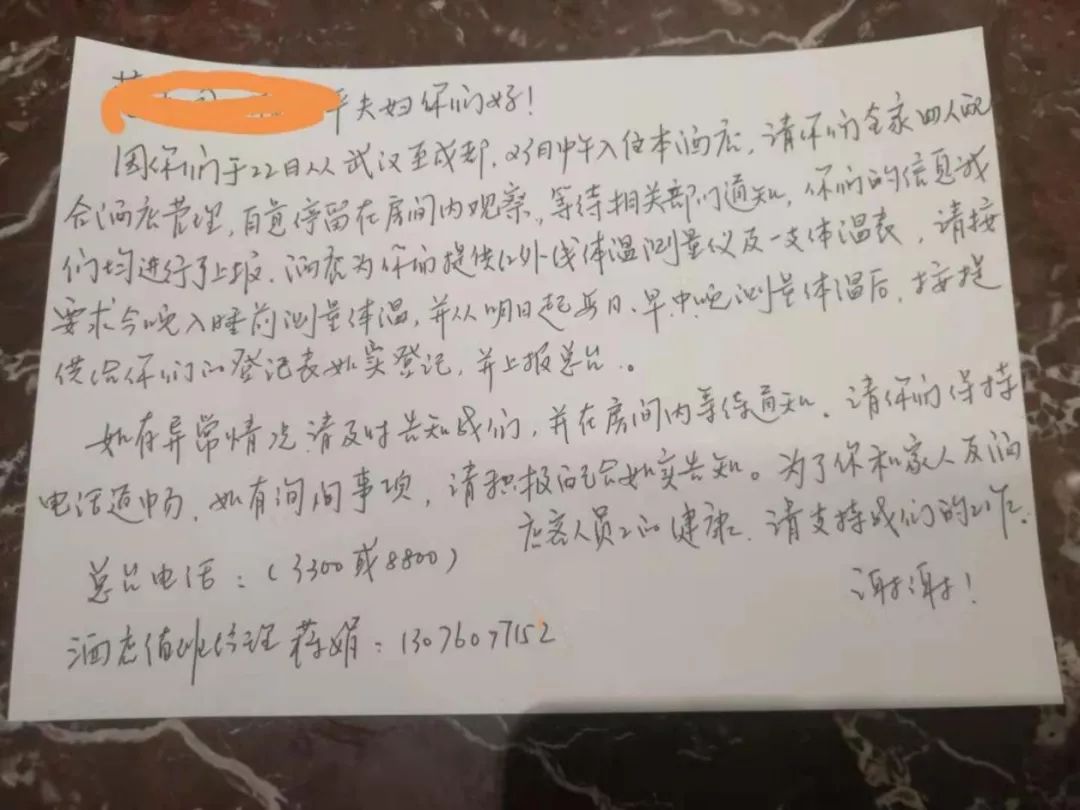 平夫妇你们好！
因你们于22日从武汉至成都，23日中午入住本酒店，请你们全家四人配
合酒店管理，自觉停留在房间内观察，等待相关部门通知，你们的信息我
们均进行了上报，酒店为你们提供红外线体温测量仪及一支体温表，请按
要求今晚入睡前测量体温，并从明日起每日、早、中、晚测量体温后，按提
供给你们的登记表如实登记，并上报总台。
如有异常情况请及时告知我们，并在房间内等待通知。请你们保持
电话通畅，如有询问事项，请积极配合如实告知。为了你和家人及酒
店客人员工的健康，请支持我们的工作。
谢谢！
总台电话：（3300或8800）
酒店值班经理 蒋娟：13076077152